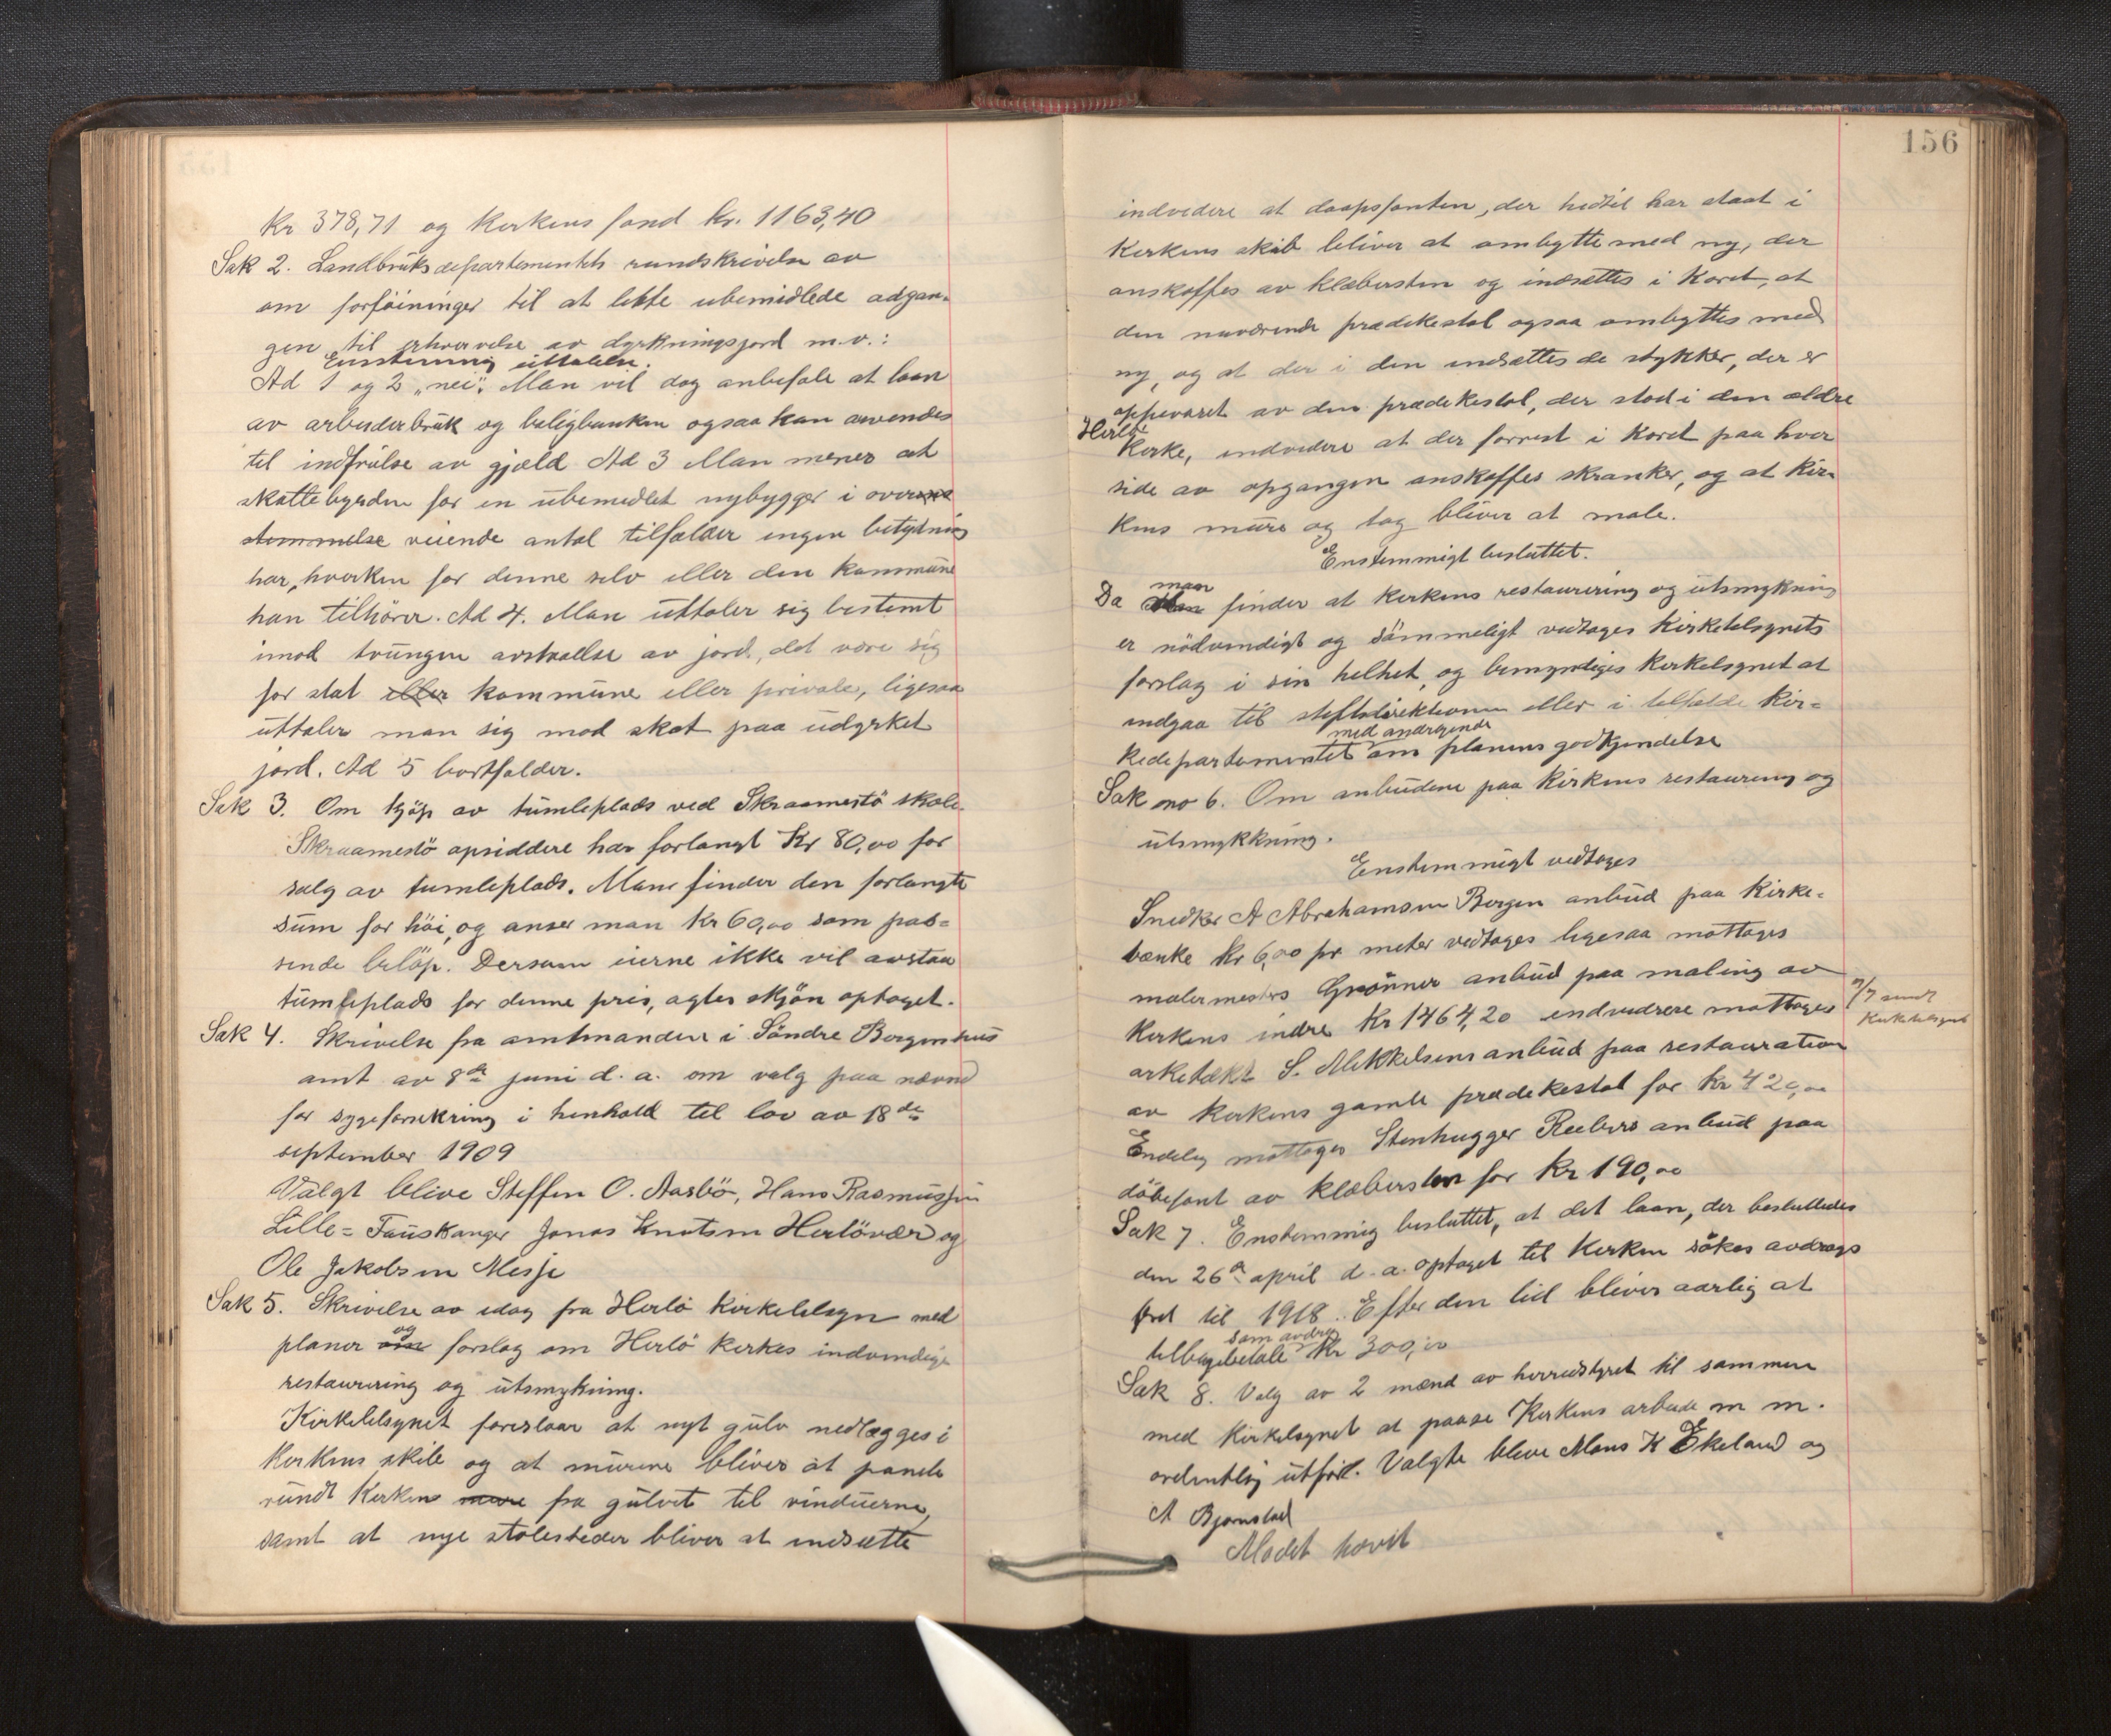 kr 378,71 og kirkens fond kr. 1163,40
Sak 2. Landbruksdepartementets rundskrivelse av
om forföininger til at lette ubemidlede adgan-
gen til erhvervelse av dyrkningsjord m.v.:
Enstemmig uttalelse.
Ad 1 og 2 „nei“. Man vil dog anbefale at laan
av arbeiderbruk og boligbanken ogsaa kan anvendes
til indfrielse av gjæld. Ad 3 Man mener at
skattebyrden for en ubemidlet nybygger i overens
stemmelse veiende antal tilfælder ingen betydning
har, hverken for denne selv eller den kommune
han tilhörer. Ad 4. Man uttaler sig bestemt
imod tvungen avstaaelse av jord, det være sig
for stat eller kommune eller private, ligesaa
uttaler man sig mod skat paa udyrket
jord. Ad 5 bortfalder.
Sak 3. Om kjöp av tumleplads ved Skraamestö skole.
Skraamestö opsiddere har forlangt Kr 80,00 for
salg av tumleplads. Man finder den forlangte
sum for höi, og anser man kr 60,00 som pas-
sende belöp. Dersom eierne ikke vil avstaa
tumleplads for denne pris, agtes skjön optaget.
Sak 4. Skrivelse fra amtmanden i Söndre Bergenhus
amt av 8de juni d. a. om valg paa nævnd
for sygeforsikring i henhold til lov av 18de
september 1909
Valgt blive Steffen O. Aasbö, Hans Rasmussen
Lille-Fauskanger Jonas Knutsen Herlövær og
Ole Jakobsen Mesje
Sak 5. Skrivelse av idag fra Herlö kirketilsyn med
planer om og forslag om Herlö kirkes indvendige
restaurering og utsmykning.
Kirketilsynet foreslaar at nyt gulv nedlægges i
kirkens skib og at murene bliver at panele
rundt kirkens mure fra gulvet til vinduerne,
samt at nye stolesteder bliver at indsætte
156
indvidere at daapsfonten, der hidtil har staat i
kirkens skib bliver at ombytte med ny, der
anskaffes av klæbersten og indsættes i koret, at
den nuværende prædikestol ogsaa ombyttes med
ny, og at der i den indsættes de stykker, der er
oppevaret av den prædikestol, der stod i den ældre
Herlö
kirke, indvidere at der forrest i koret paa hver
side av opgangen anskaffes skranker, og at kir-
kens mure og tag bliver at male.
Enstemmigt besluttet.
Da man finder at kirkens restaurering og utsmykning
er nödvendigt og sömmeligt vedtages kirketilsynets
forslag i sin helhet, og bemyndiges kirketilsynet at
indgaa til stiftsdirektionen eller i tilfælde kir-
med andragende
kedepartementet om planens godkjendelse
Sak no 6. Om anbudene paa kirkens restaurering og
utsmykkning.
Enstemmigt vedtages
Snedker A Abrahamsen Bergen anbud paa kirke-
bænke kr 6,00 pr meter vedtages ligesaa mottages
malermesters Grönner anbud paa maling av
kirkens indre Kr 1464,20 endvidere mottages
arkitækt S. Mikkelsens anbud paa restauration
av kirkens gamle prædikestol for kr 420,00
Endelig mottages Stenhugger Reebers anbud paa
döbefont av klæbersten for kr 190,00
9/7 sendt
Kirketilsynet
Sak 7. Enstemmig besluttet, at det laan, der besluttedes
den 26de april d. a. optaget til kirken sökes avdrags
fret til 1918. Efter den tid bliver aarlig at
som avdrag
tilbagebetale kr 300,00
Sak 8. Valg av 2 mænd av herredstyret til sammen
med kirketilsynet at paase kirkens arbeide m m.
ordentlig utfört. Valgte bleve Mons K Ekeland og
A Bjornstad
Mödet hævet